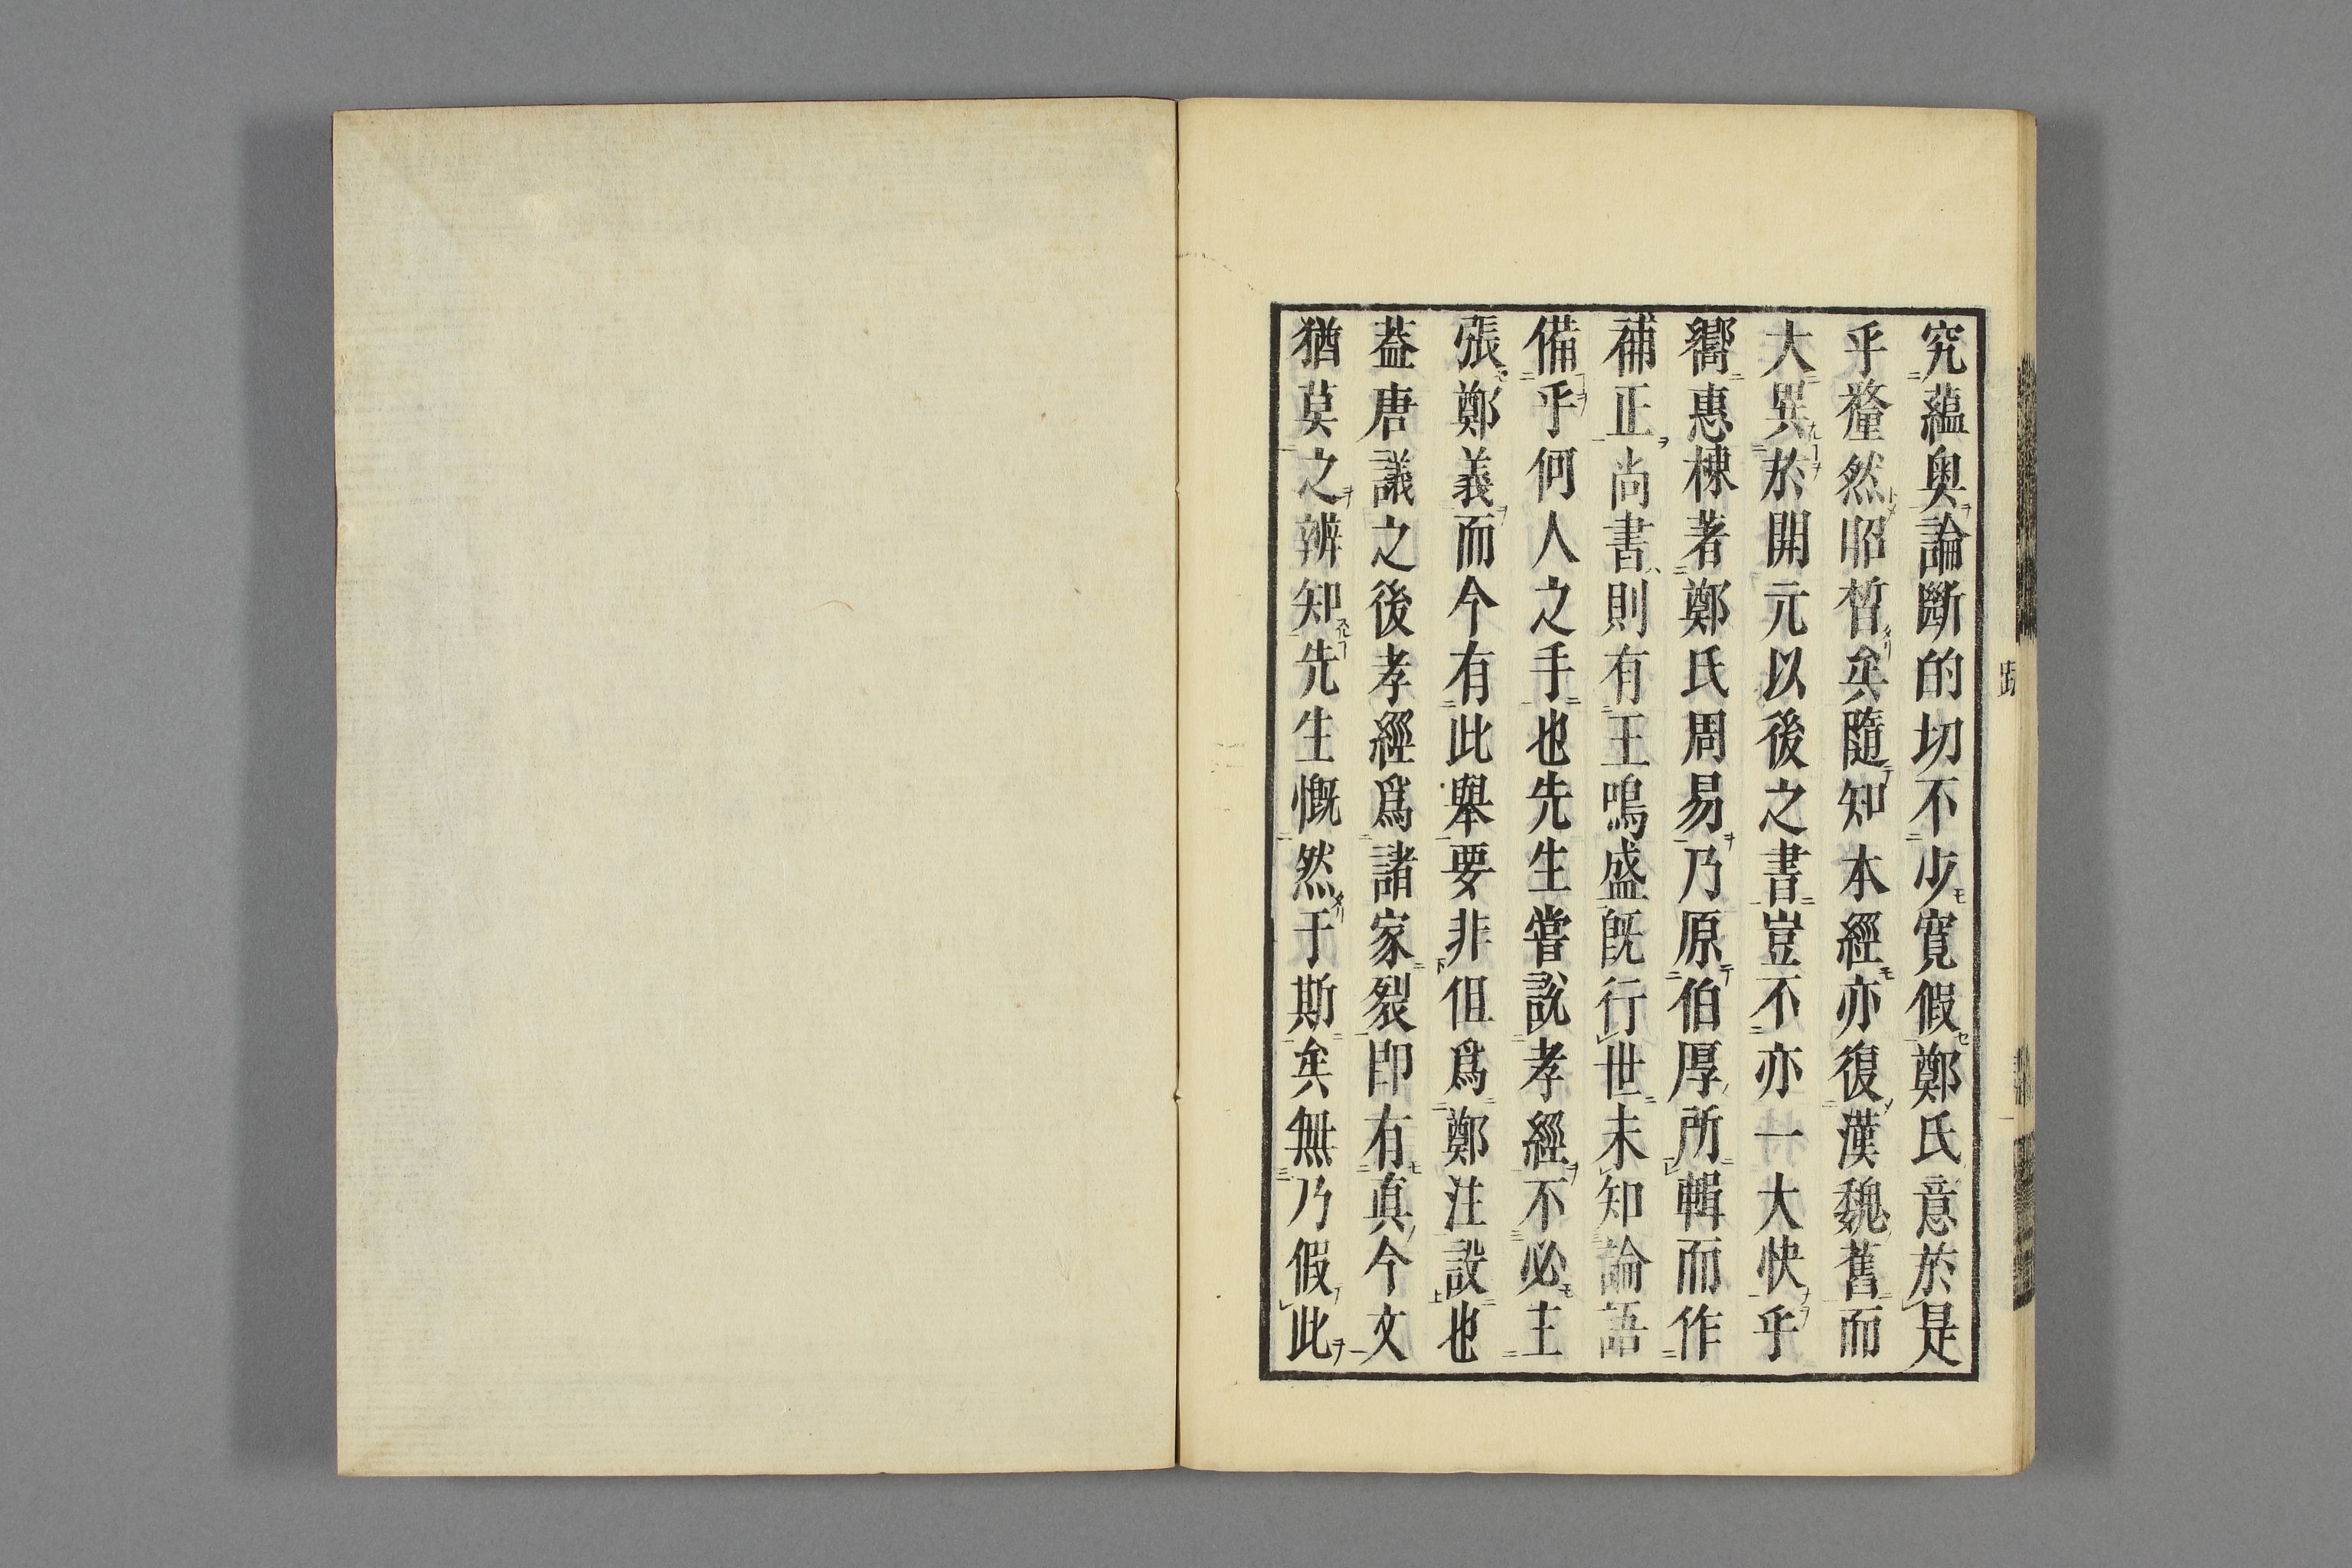 究蘊奥論斷的切不少寛假鄭氏意於是
乎犂然昭晢矣隨知本經亦復漢魏舊而
大異於開元以後之書豈不亦一大快乎
嚮惠棟著鄭氏周易乃原伯厚所輯而作
補正尚書則有王鳴盛既行世未知論語
備乎何人之手也先生嘗説孝經不必主
張鄭義而今有此舉要非但爲鄭注設也
葢唐議之後孝經爲諸家裂即有真今文
猶莫之辨知先生慨然于斯矣無乃假此